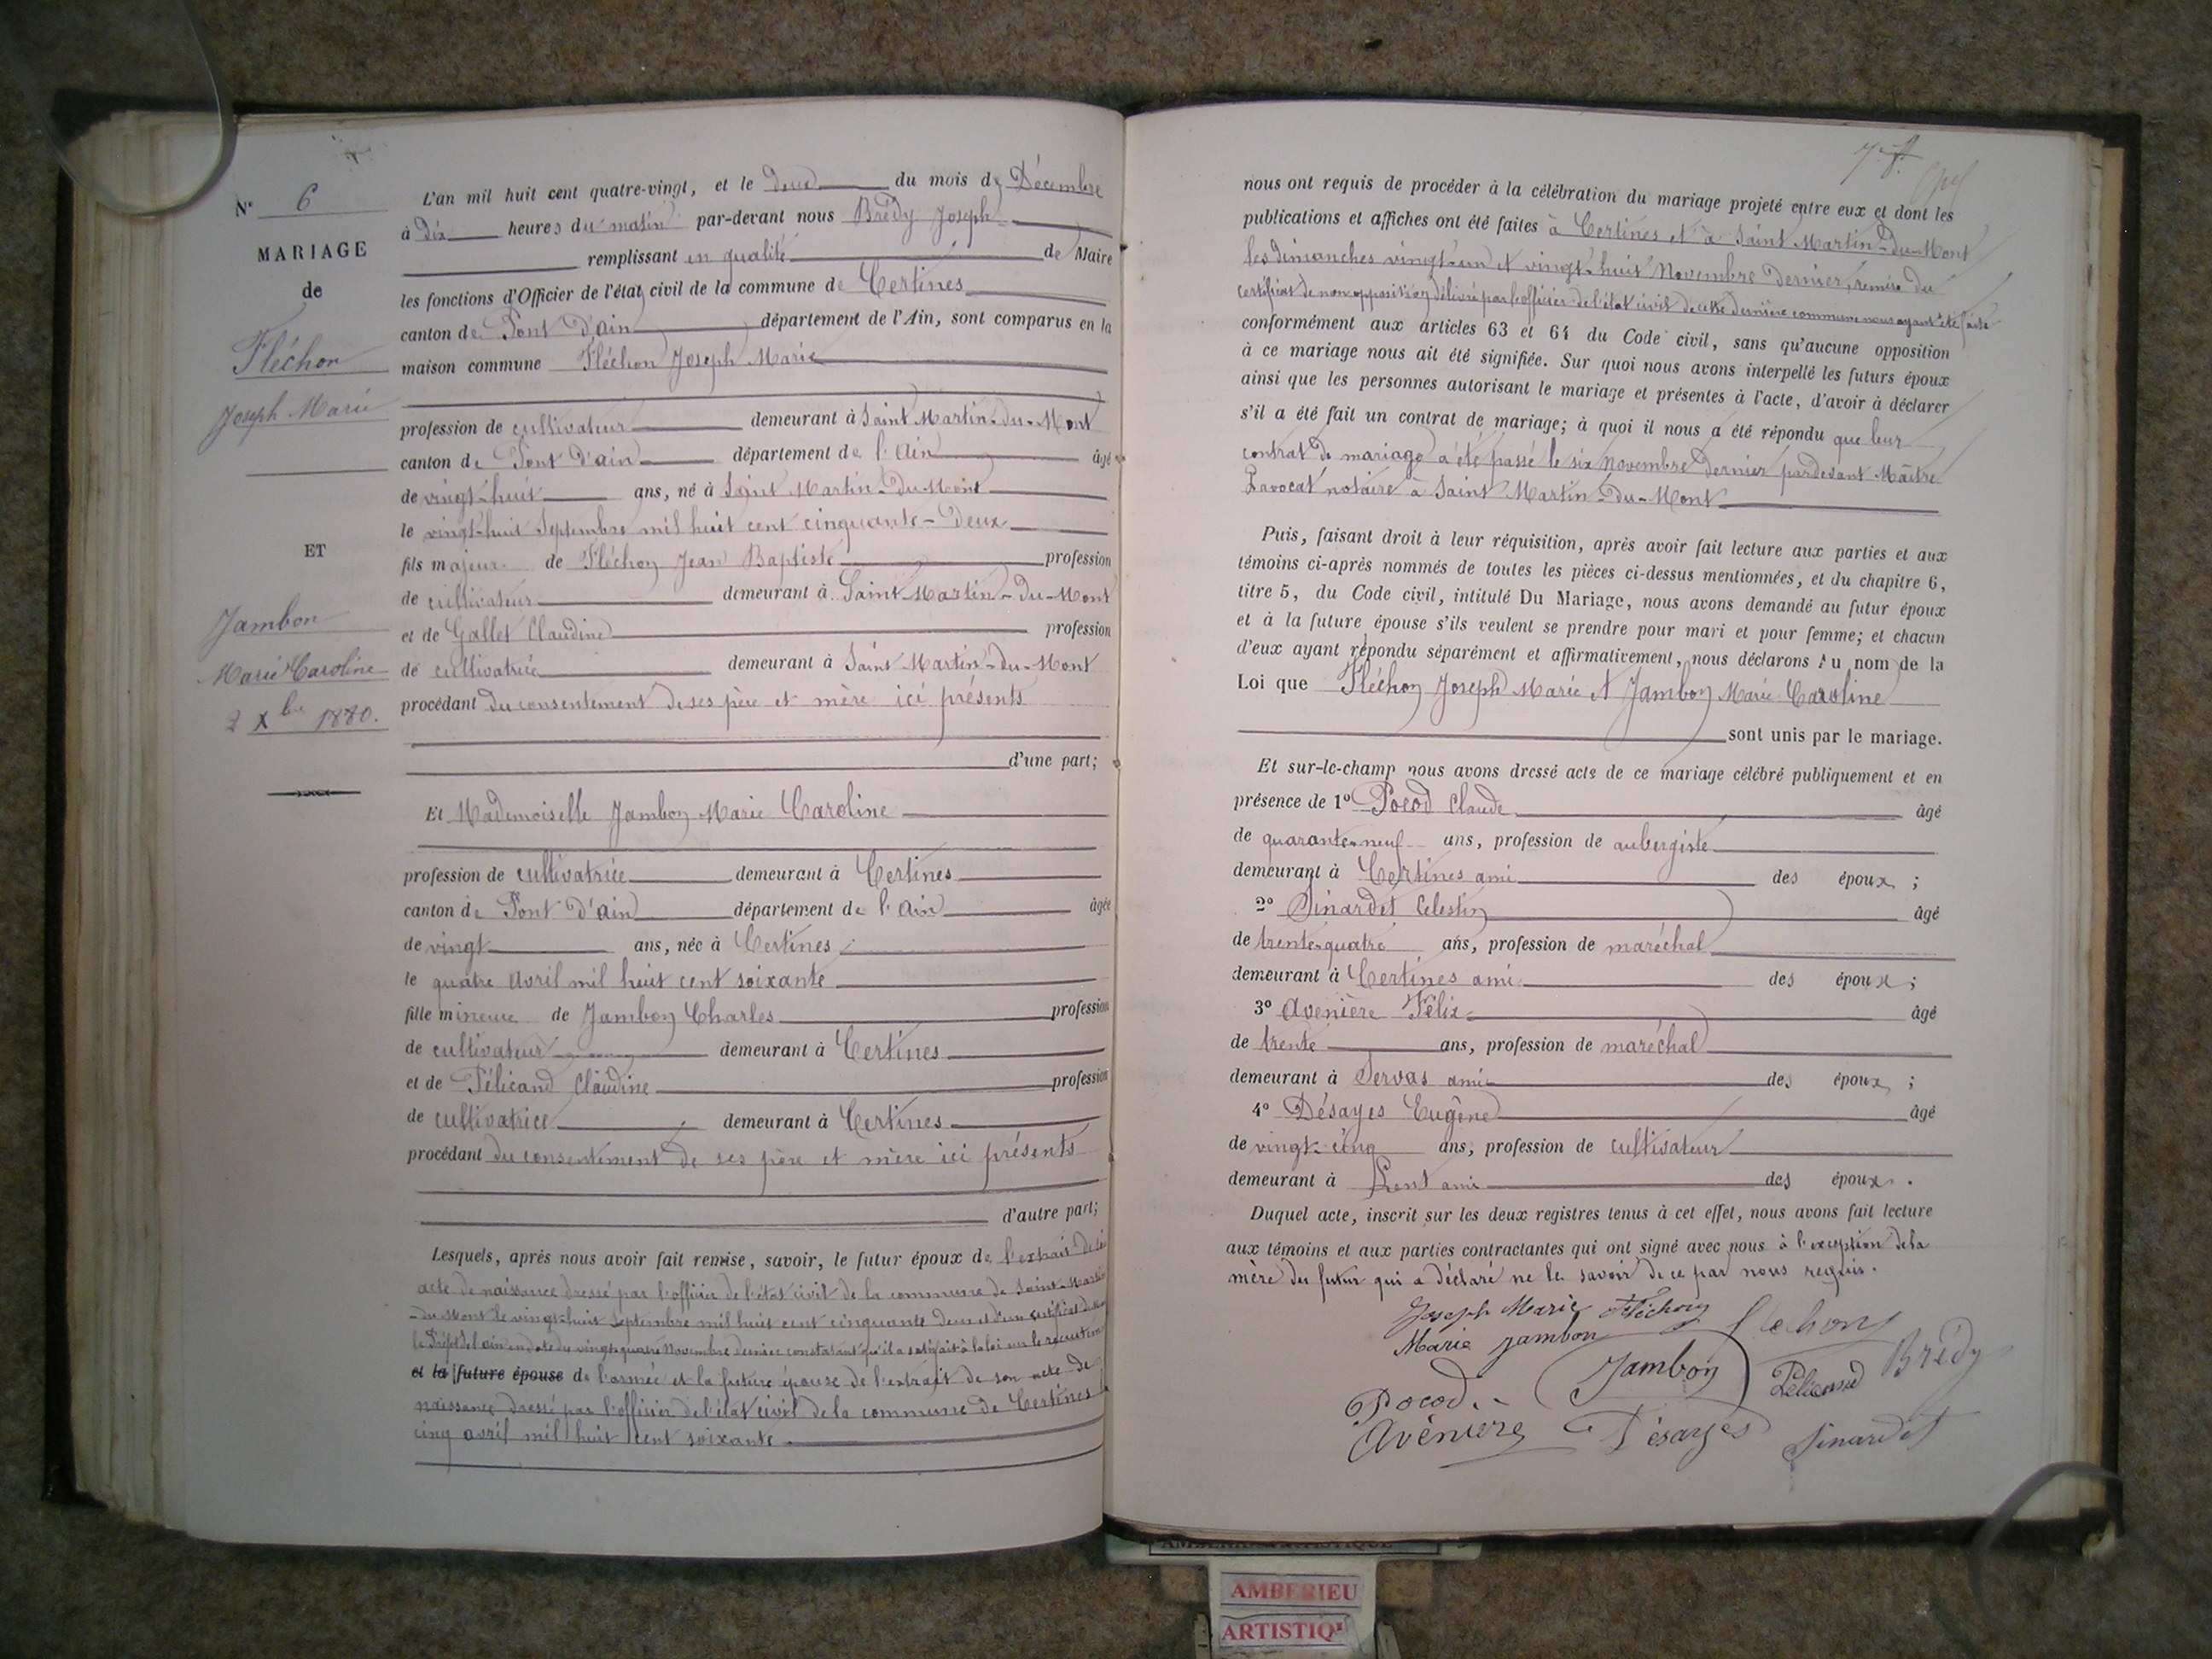 N° 6
MARIAGE
de
Fléchon
Joseph Marie
ET
Jambon
Marie Caroline
2 Xbre 1880.
L'an mil huit cent quatre-vingt, et le deux du mois de Décembre
à dix heures du matin par-devant nous Brédy Joseph
remplissant en qualité de Maire
les fonctions d'Officier de l'état civil de la commune de Certines
canton de Pont d'ain département de l'Ain, sont comparus en la
maison commune Fléchon Joseph Marie
profession de cultivateur demeurant à Saint Martin-du-Mont
canton de Pont d'ain département de l'Ain âgé
de vingt-huit ans, né à Saint Martin-du-Mont
le vingt-huit Septembre mil huit cent cinquante-Deux
fils majeur de Fléchon Jean Baptiste profession
de cultivateur demeurant à Saint Martin-du-Mont
et de Gallet Claudine profession
de cultivatrice demeurant à Saint Martin-du-Mont
procédant du consentement de ses père et mère ici présents
d'une part;
Et Mademoiselle Jambon Marie Caroline
profession de cultivatrice demeurant à Certines
canton de Pont d'ain département de l'Ain âgée
de vingt ans, née à Certines
le quatre avril mil huit cent soixante
fille mineure de Jambon Charles profession
de cultivateur demeurant à Certines
et de Pélicand Claudine profession
de cultivatrice demeurant à Certines
procédant du consentement de ses père et mère ici présents
d'autre part;
Lesquels, après nous avoir fait remise, savoir, le futur époux de l'extrait de l'
acte de naissance dressé par l'officier de l'état civil de la commune de Saint-Martin
-du-Mont le vingt-huit Septembre mil huit cent cinquante deux et d'un certificat de
le Préfet de l'ain en date du vingt-quatre Novembre dernier constatant qu'il a satisfait à la loi sur le recrutement
et la future épouse de l'armée et la future épouse de l'extrait de son acte de
naissance dressé par l'officier de l'état civil de la commune de Certines le
cinq avril mil huit cent soixante
nous ont requis de procéder à la célébration du mariage projeté entre eux et dont les
publications et affiches ont été faites à Certines et à Saint Martin-du-Mont
les dimanches vingt-un et vingt-huit Novembre Dernier, remise du
certificat de non opposition délivré par l'officier de l'état civil de cette dernière commune nous ayant été faite
conformément aux articles 63 et 64 du Code civil, sans qu'aucune opposition
à ce mariage nous ait été signifiée. Sur quoi nous avons interpellé les futurs époux
ainsi que les personnes autorisant le mariage et présentes à l'acte, d'avoir à déclarer
s'il a été fait un contrat de mariage; à quoi il nous a été répondu que leur
contrat de mariage a été passé le six Novembre dernier pardevant Maître
Ravocat notaire à Saint Martin-du-Mont
Puis, faisant droit à leur réquisition, après avoir fait lecture aux parties et aux
témoins ci-après nommés de toutes les pièces ci-dessus mentionnées, et du chapitre 6,
titre 5, du Code civil, intitulé Du Mariage, nous avons demandé au futur époux
et à la future épouse s'ils veulent se prendre pour mari et pour femme; et chacun
d'eux ayant répondu séparément et affirmativement, nous déclarons Au nom de la
Loi que Fléchon Joseph Marie et Jambon Marie Caroline
sont unis par le mariage.
Et sur-le-champ nous avons dressé acte de ce mariage célébré publiquement et en
présence de 1° Pocod Claude âgé
de quarante-neuf ans, profession de aubergiste
demeurant à Certines ami des époux ;
2° Sinardet Celestin âgé
de trente-quatre ans, profession de maréchal
demeurant à Certines ami des époux ;
3° Avenière Félix âgé
de trente ans, profession de maréchal
demeurant à Servas ami des époux ;
4° Désayes Eugène âgé
de vingt-cinq ans, profession de cultivateur
demeurant à Lent ami des époux .
Duquel acte, inscrit sur les deux registres tenus à cet effet, nous avons fait lecture
aux témoins et aux parties contractantes qui ont signé avec nous à l'exception de la
mère du futur qui a déclaré ne le savoir de ce par nous requis.
Joseph Marie Fléchon Flechon
Marie Jambon
Jambon Pélicand Brédy
Pocod
Avenière Désayes Sinardet
AMBERIEU
ARTISTIQ